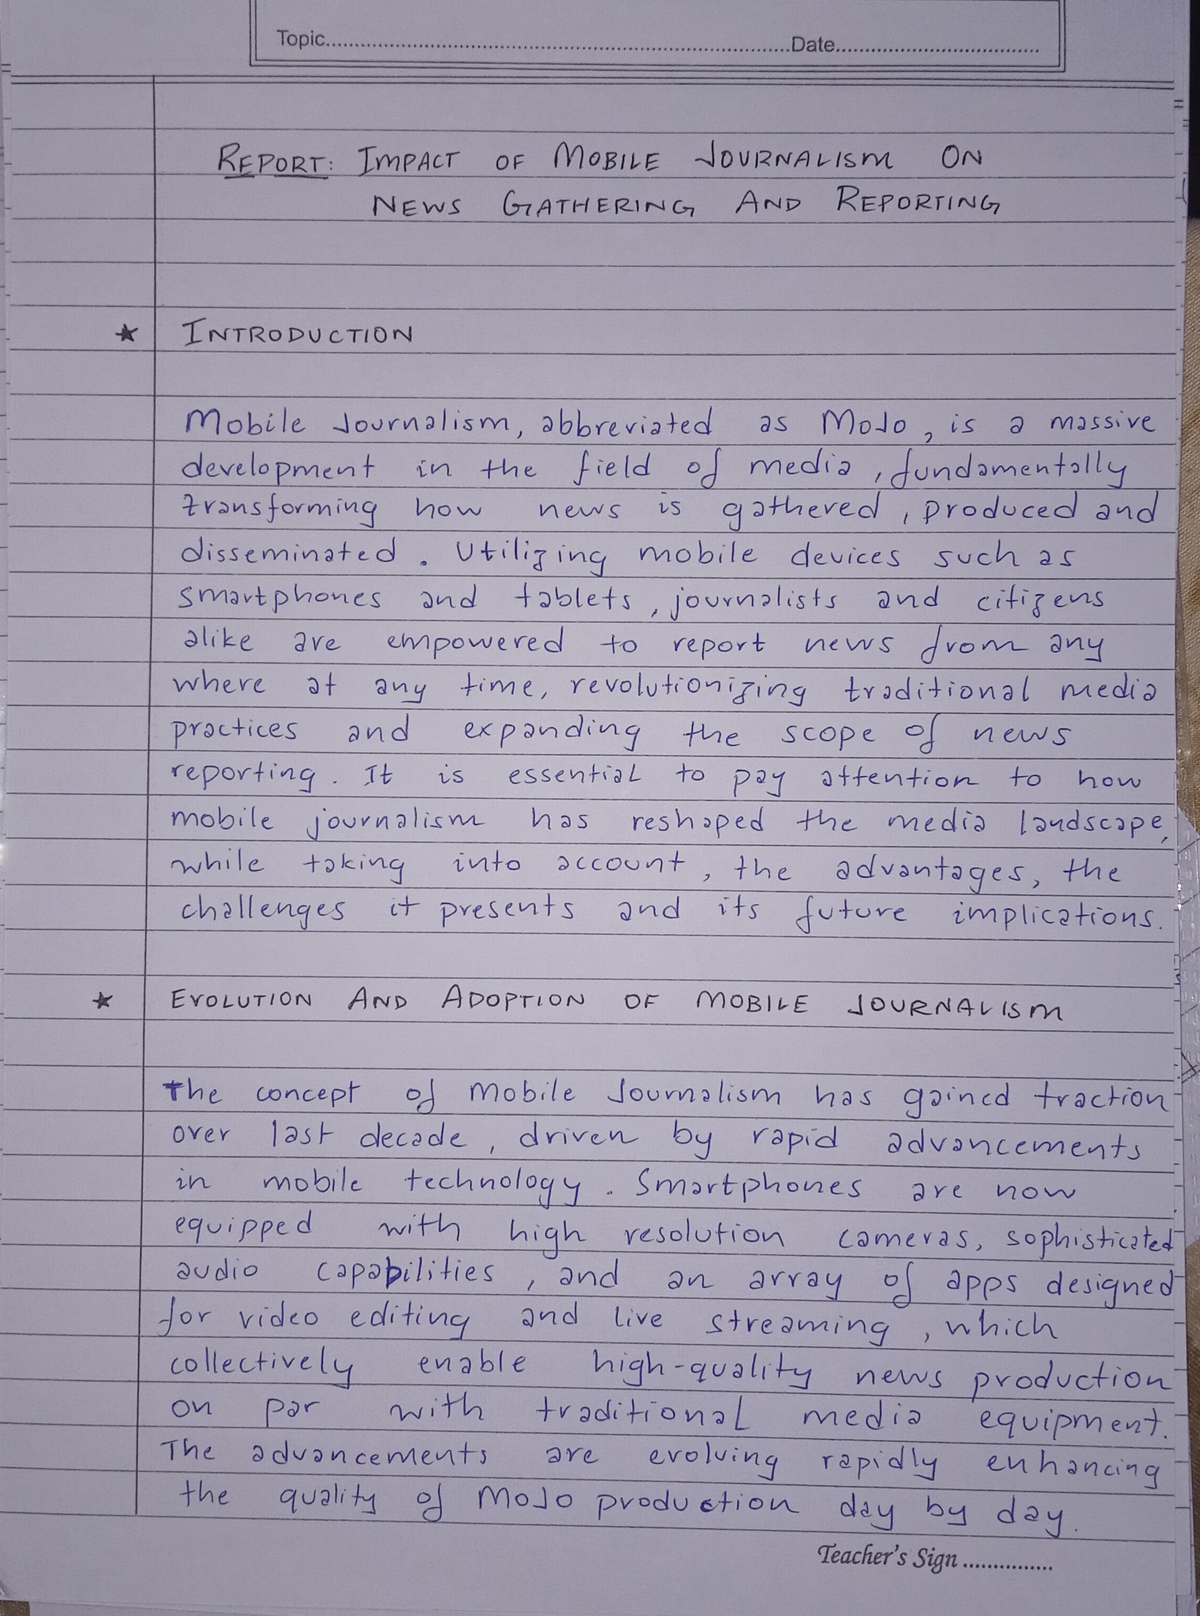 Topic..........Date..........
REPORT: IMPACT OF MOBILE JOURNALISM ON
NEWS GATHERING AND REPORTING
★ INTRODUCTION
Mobile Journalism, abbreviated as MoJo, is a massive
development in the field of media, fundamentally
transforming how news is gathered, produced and
disseminated. Utilizing mobile devices such as
smartphones and tablets, journalists and citizens
alike are empowered to report news from any
where at any time, revolutionizing traditional media
practices and expanding the scope of news
reporting. It is essential to pay attention to how
mobile journalism has reshaped the media landscape,
while taking into account, the advantages, the
challenges it presents and its future implications.
★ EVOLUTION AND ADOPTION OF MOBILE JOURNALISM
The concept of Mobile Journalism has gained traction
over last decade, driven by rapid advancements
in mobile technology. Smartphones are now
equipped with high resolution cameras, sophisticated
audio capabilities, and an array of apps designed
for video editing and live streaming, which
collectively enable high-quality news production
on par with traditional media equipment.
The advancements are evolving rapidly enhancing
the quality of MoJo production day by day.
Teacher's Sign ...............